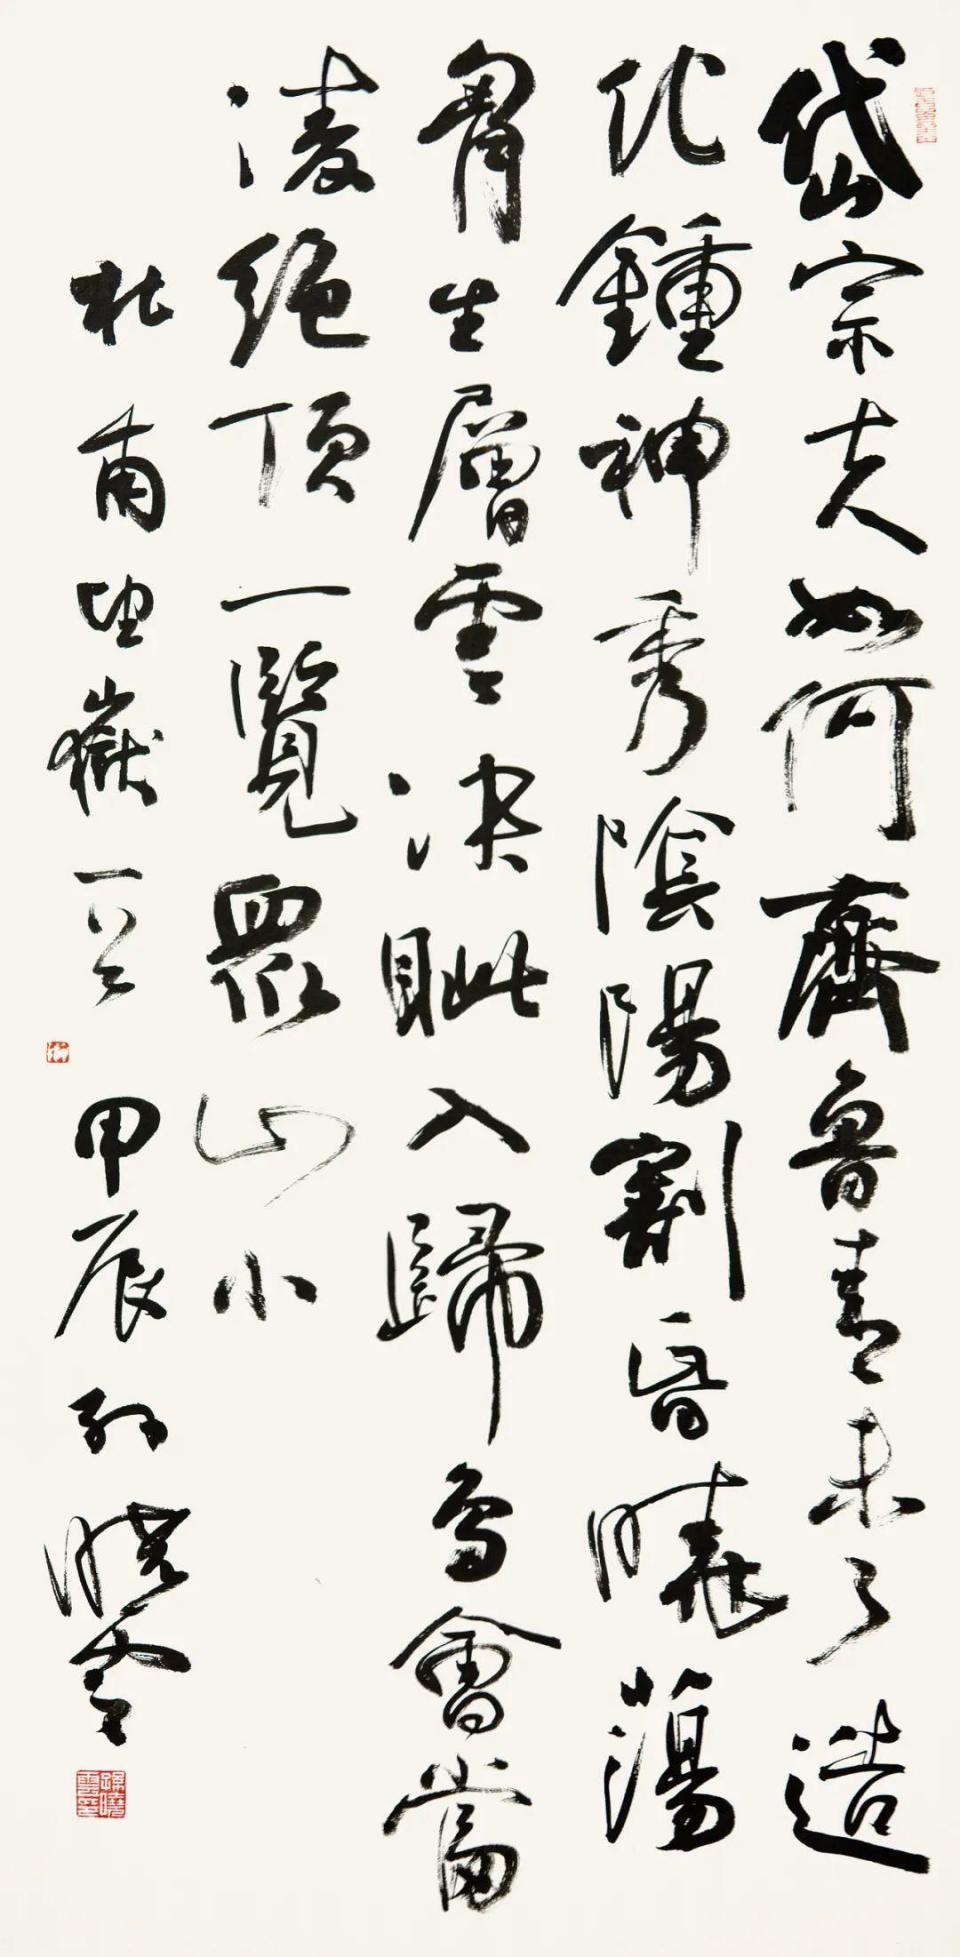 岱宗夫如何齊魯青未了造
化鍾神秀陰陽割昏曉蕩
胷生層雲决眦入歸鳥會當
凌絕頂一覽眾山小
杜甫望嶽一首 甲辰 孫曉雲